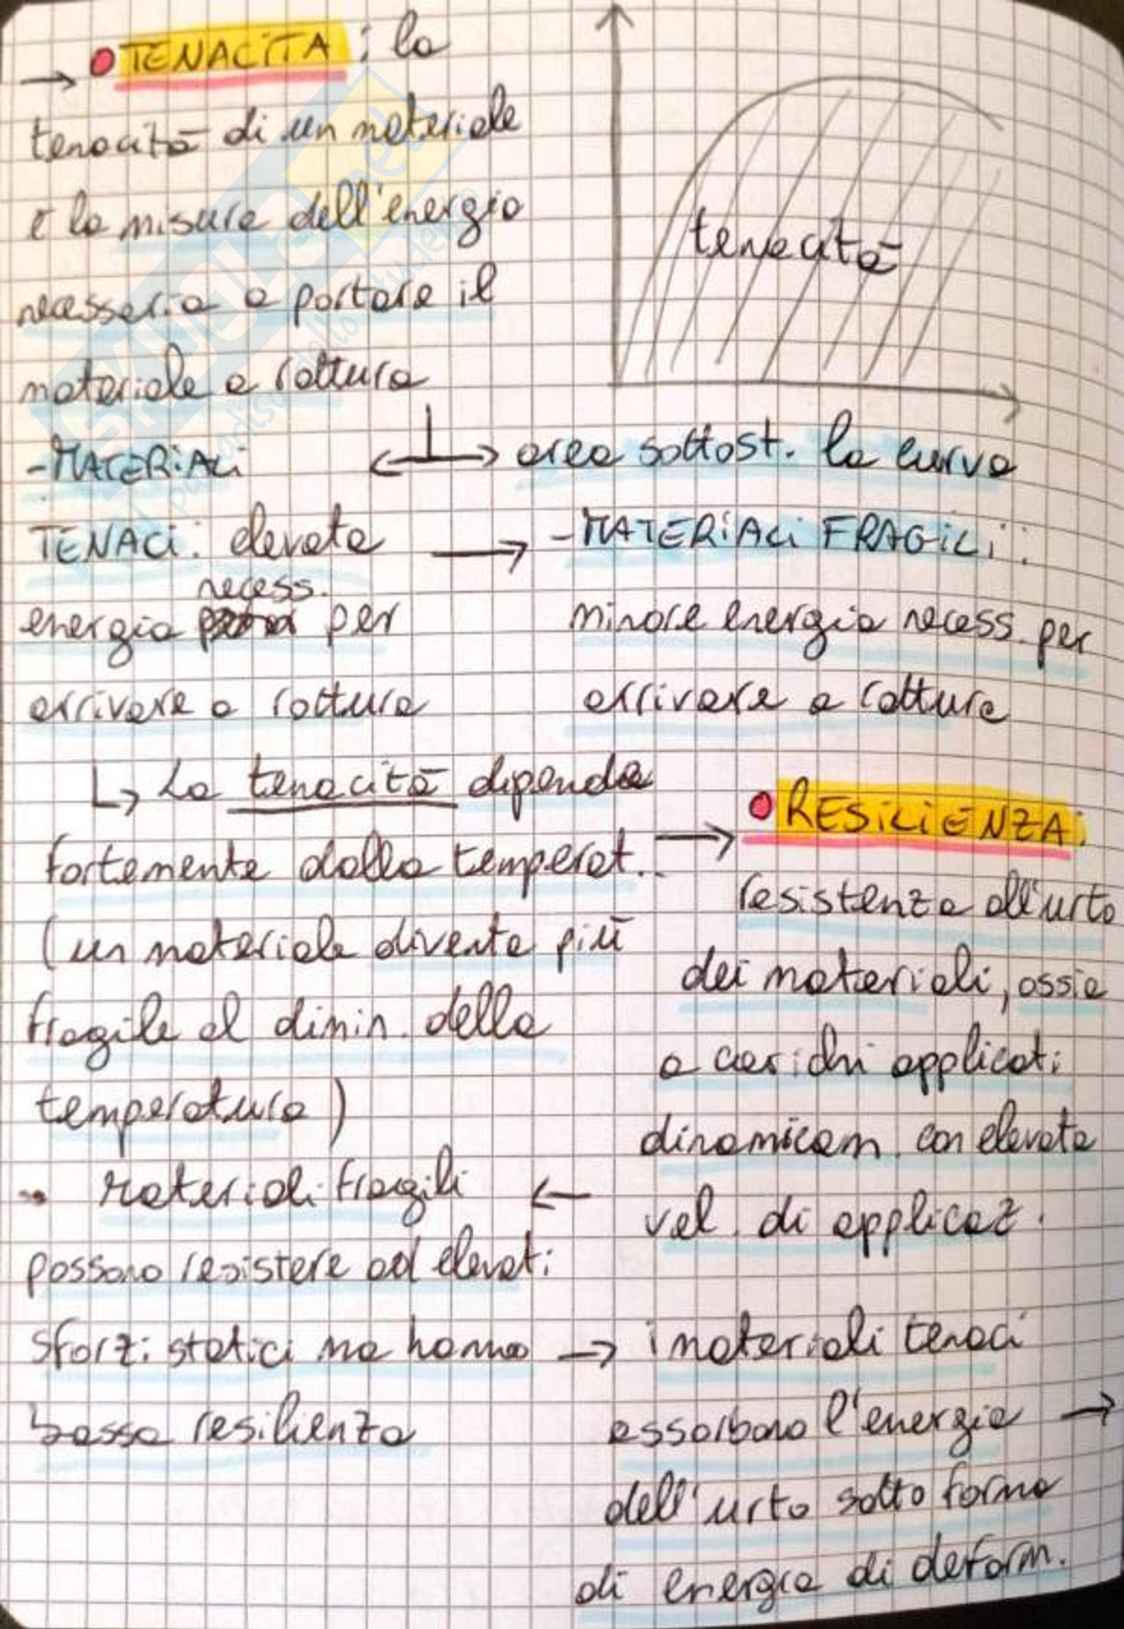 → • TENACITÀ : la
tenacità di un materiale
è la misura dell'energia
necessaria a portare il
materiale a rottura
tenacità
← → area sottost. la curva
- MATERIALI
TENACI : elevata
necess.
energia per
arrivare a rottura
→ - MATERIALI FRAGILI :
minore energia necess. per
arrivare a rottura
↳ La tenacità dipende
fortemente dalla temperat.
(un materiale diventa più
fragile al dimin. della
temperatura)
→ • RESILIENZA :
resistenza all'urto
dei materiali, ossia
a carichi applicati
dinamicam. con elevata
vel. di applicaz.
←
- Materiali fragili
possono resistere ad elevati
sforzi statici ma hanno
bassa resilienza
→ i materiali tenaci
assorbono l'energia →
dell'urto sotto forma
di energia di deform.